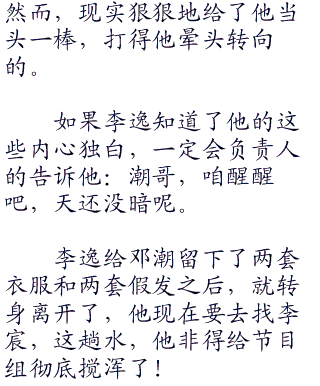 然而，现实狠狠地给了他当
头一棒，打得他晕头转向
的。
如果李逸知道了他的这
些内心独白，一定会负责人
的告诉他：潮哥，咱醒醒
吧，天还没暗呢。
李逸给邓潮留下了两套
衣服和两套假发之后，就转
身离开了，他现在要去找李
宸，这趟水，他非得给节目
组彻底搅浑了！